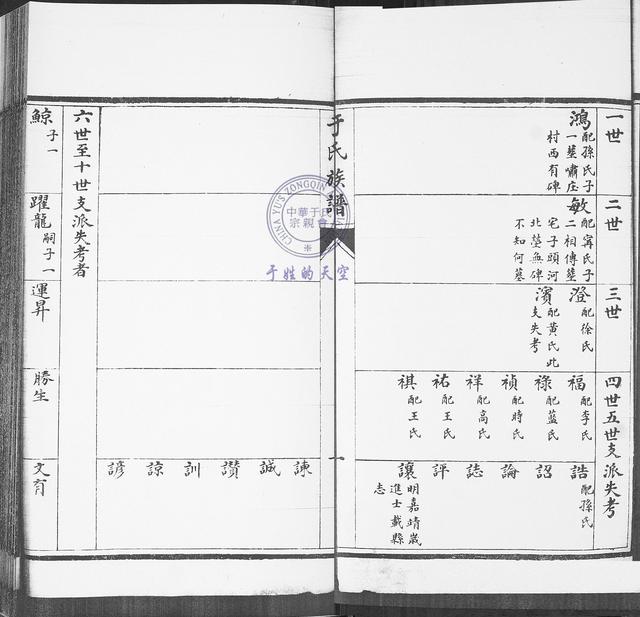 一世
鴻
配孫氏子
一塋嘯庄
村西有碑
二世
敏
配甯氏子
二相傳塋
宅子頭河
北塋無碑
不知何墓
三世
澄
配徐氏
濱
配黄氏此
支失考
四世五世支派失考
福
配李氏
祿
配藍氏
禎
配時氏
祥
配高氏
祐
配王氏
祺
配王氏
誥
配孫氏
詔
論
誌
評
讓
明嘉靖歲
進士載縣
志
于氏族譜
一
諫
誠
讚
訓
諒
諺
六世至十世支派失考者
鯨
子一
躍龍
嗣子一
運昇
勝生
文育
CHINA YU'S ZONGQIN
中華于氏
宗親會
于姓的天空